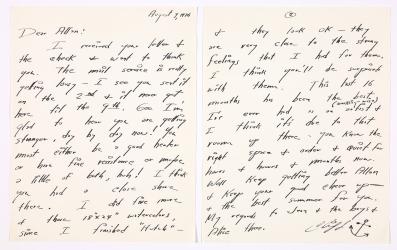 August 7, 1976
Dear Allan!
I received your letter &
the check & want to thank
you. The mail service is really
getting lousy — I see you sent it
on the 2nd & it never got
here til the 9th. Gee I'm
glad to hear you are getting
stronger, day by day now! You
must either be a good healer
or have fine resistance or maybe
a little of both, huh! I think
you had a close shave
there. I did five more
& three 18"x24" watercolors,
since I finished "Hutch" —
②
& they look OK — they
are very close to the strong
feelings that I had for them.
I think you'll be surprised
with them. This last 16
months has been the best,
I've ever had as an artist &
I think it's due to that
room up there. You know the
right space & order & quiet for
hours & hours & months now.
Well keep getting better Allan
& keep your good cheer up —
& the best summer for you.
My regards to & the boys &
Alice there.